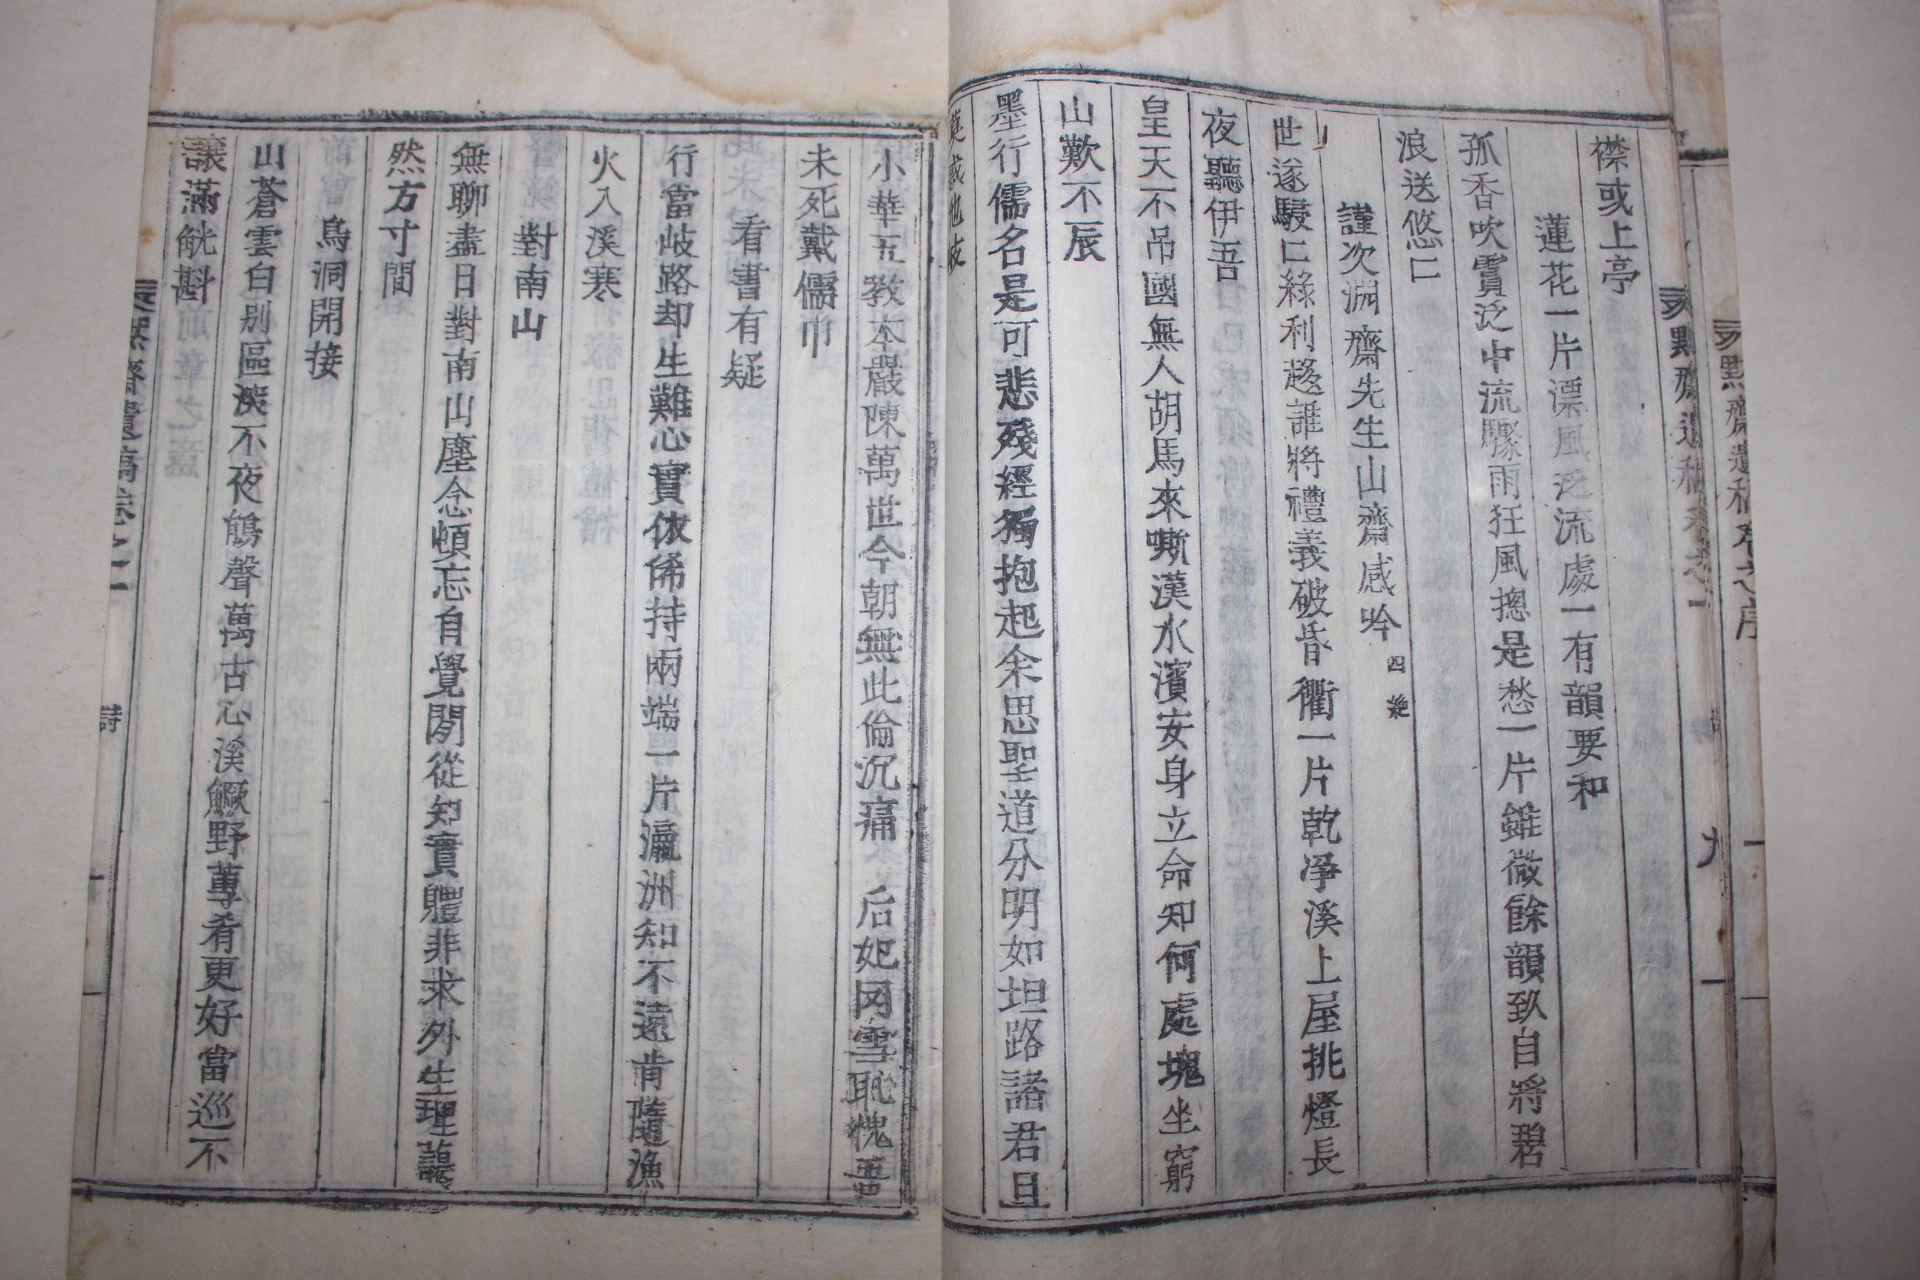 默齋遺稿卷之序
默齋遺稿卷之一
詩
九
襟或上亭
蓮花一片漂風泛流處一有韻要和
孤香吹霣泛中流驟雨狂風摠是愁一片雖微餘韻致自將碧
浪送悠〻
謹次淵齋先生山齋感吟 四絶
世遂駸〻絲利趍誰將禮義破昏衢一片乾凈溪上屋挑燈長
夜聽伊吾
皇天不吊國無人胡馬來嘶漢水濱安身立命知何處塊坐窮
山歎不辰
墨行儒名是可悲殘經獨抱起余思聖道分明如坦路諸君且
莫惑他岐
小華五敎本嚴陳萬世今朝無此倫沉痛 后妃罔雪恥愧吾
未死戴儒巾
看書有疑
行當歧路却生難心實依俙持兩端一片瀛洲知不遠肯隨漁
火入溪寒
對南山
無聊盡日對南山塵念頓忘自覺閒從知實體非求外生理藹
然方寸間
烏洞開接
山蒼雲白別區深不夜鶴聲萬古心溪鱖野蓴肴更好當巡不
讓滿觥斟
默齋遺稿卷之一
詩
十